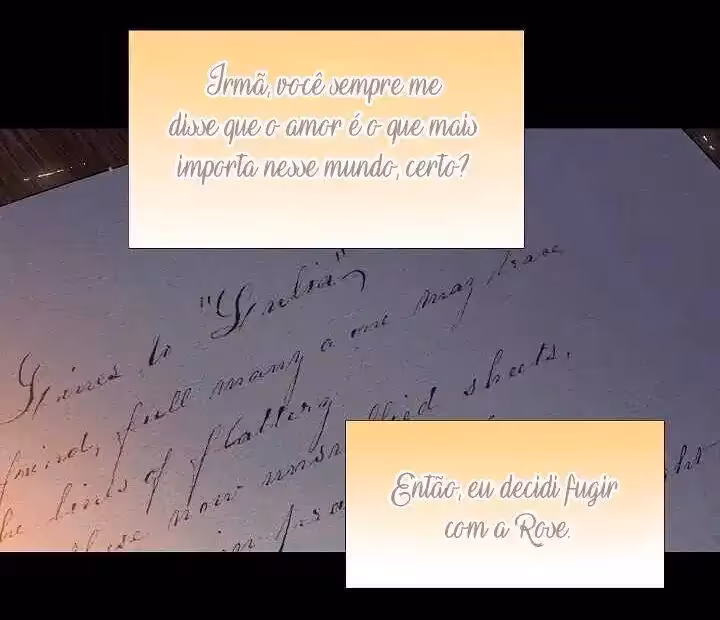 Irmã, você sempre me
disse que o amor é o que mais
importa nesse mundo, certo?
Lines to "Julia"
friend, full many a one may trace
the lines of flattery sheets,
these now
Então, eu decidi fugir
com a Rose.